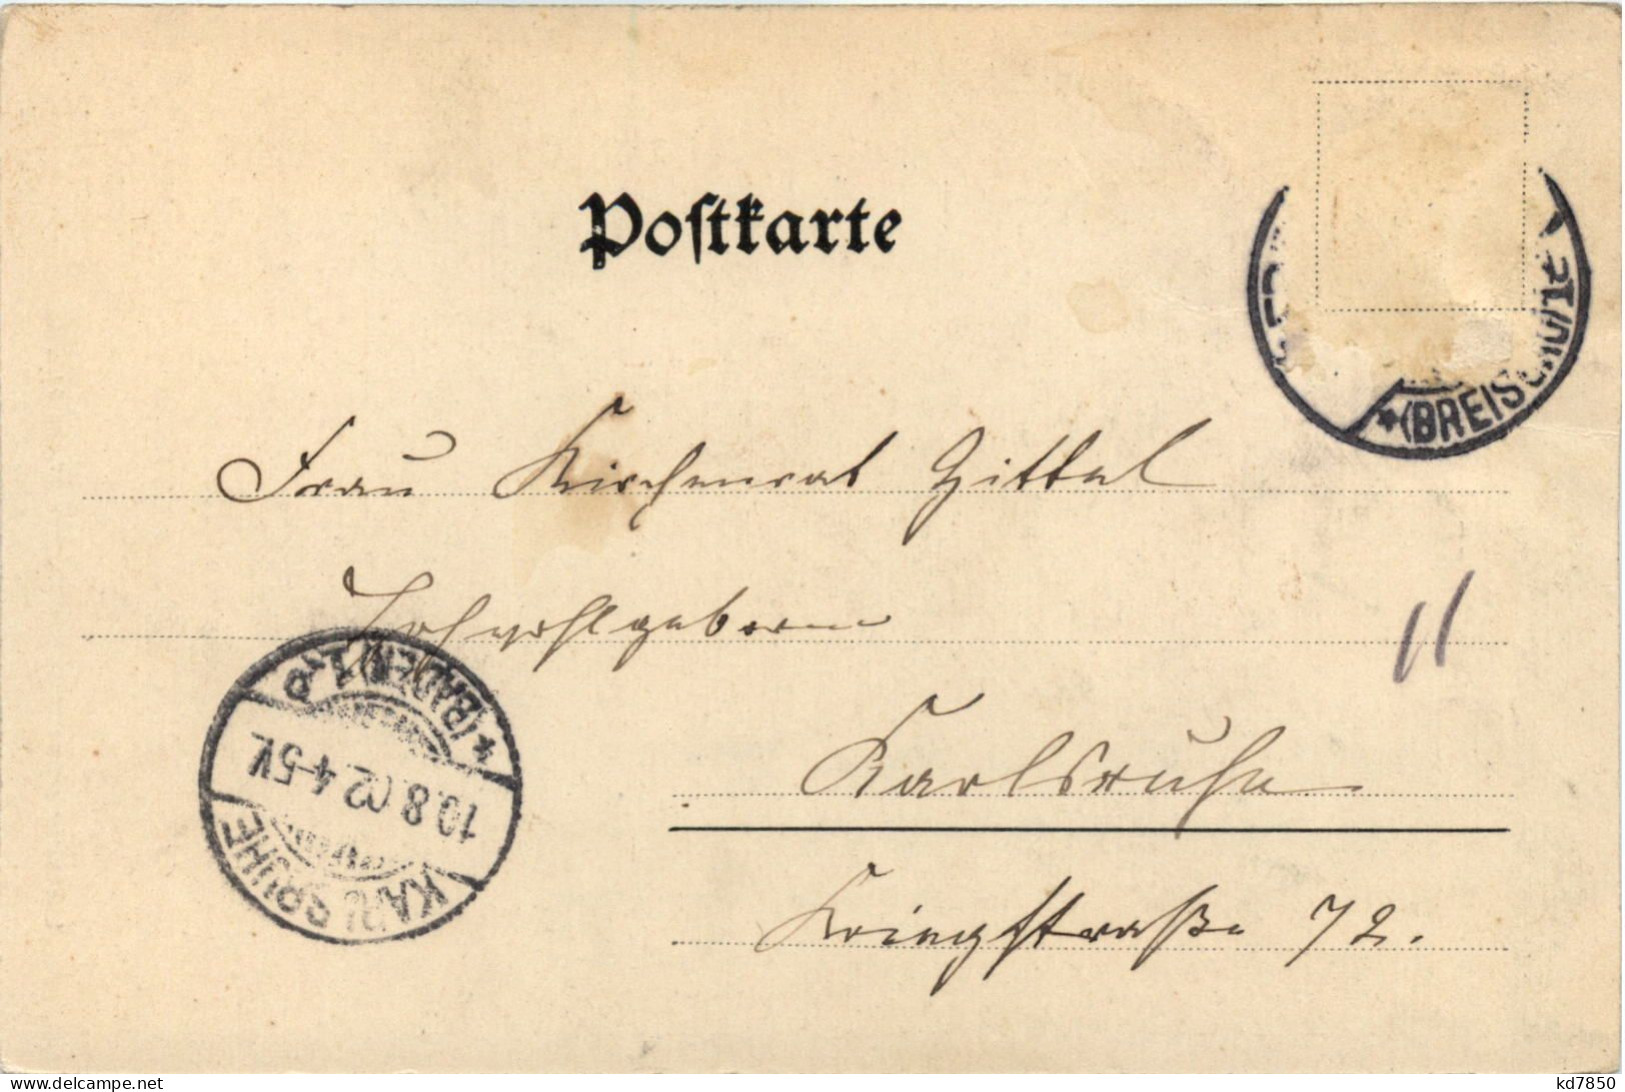 Postkarte
(BREISG
Frau Kirchenrat Zittel
Hochwohlgeboren
Karlsruhe
Kriegstraße 72.
11
KARLSRUHE
10.8.02.4-5V.
*(BADEN) 1.
www.delcampe.net
kd7850